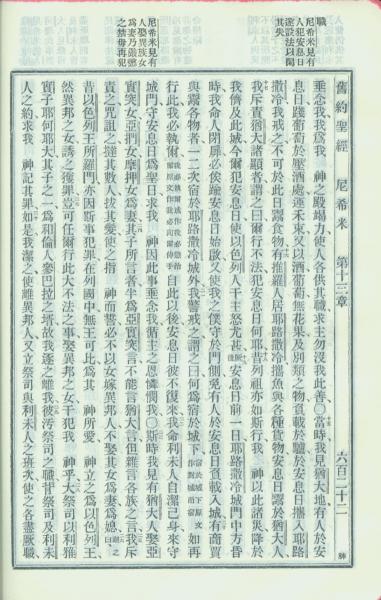 職
尼希米見有
人犯安息日
遂設法以閑
其失
尼希米見有
人娶異族女
爲妻乃嚴懲
之禁毋再犯
舊約聖經 尼希米 第十三章 六百二十二
垂念我、我爲我 神之殿竭力使人各供其職、求主勿沒我此善○當時我見猶大地有人於安
息日踐葡萄於壓酒處運禾束又以酒葡萄無花果及別類之物負載於驢於安息日攜入耶路
撒冷我戒之不可於此日鬻食物有推羅人居耶路撒冷攜魚與各種貨物安息日鬻於猶大人
我斥責猶大諸顯者謂之曰爾行不法犯安息日何耶昔列祖亦如斯行我 神以此諸災降於
我儕及此城今爾犯安息日使以色列人干主怒尤甚安息日前一日耶路撒冷城門中方昏
時我命人閉扉必俟踰安息日始啟又使我之僕守於門側免有人於安息日負載入城有商賈
與鬻各物者一二次宿於耶路撒冷城外我警戒之謂之曰何爲宿於城下宿於城下原文作對城而宿如再
行此我必執爾自此以後安息日彼不復來我命利未人自潔己身來守
城門守安息日爲聖日求我 神因此事垂念我循主之恩憐憫我○斯時我見有猶大人娶亞
實突女亞捫女摩押女爲妻其子所言者半爲亞實突言不能言猶大言但雜言各族之言我斥
責之咒詛之撻其數人拔其髮使之指 神而誓必不以女嫁異邦人不娶其女爲妻爲媳
昔以色列王所羅門亦因斯事犯罪在列國中無王可比爲其 神所愛 神立之爲以色列王
然異邦之女誘之獲罪豈可任爾行此大不法之事娶異邦之女干犯我 神乎大祭司以利雅
實子耶何耶大其子之一爲和倫人參巴拉之壻故我逐之離我彼污祭司之職背祭司及利未
人之約求我 神記其罪如是我潔之使離異邦人又立祭司與利未人之班次使之各盡厥職